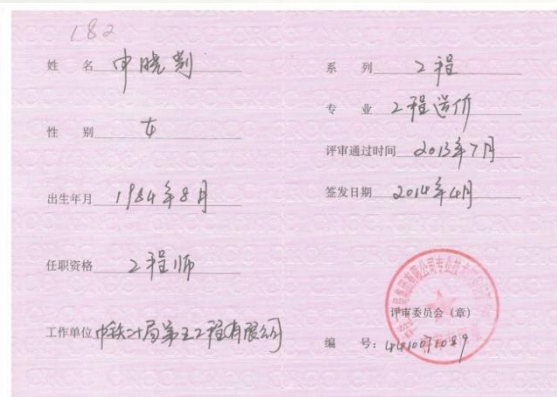 182
姓 名 申晓荆
性 别 女
出生年月 1984年8月
任职资格 工程师
工作单位 中铁二十局第五工程有限公司
系 列 工程
专 业 工程造价
评审通过时间 2013年7月
签发日期 2014年4月
评审委员会（章）
编 号：